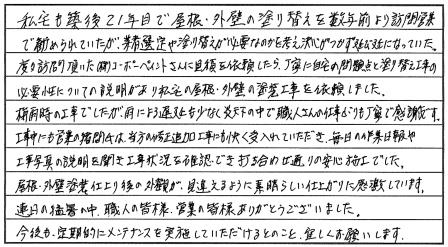 私宅も築後21年目で屋根・外壁の塗り替えを数年前より訪問営業
で勧められていたが、業者選定や塗り替えが必要なのかを考え決心がつかず延ばしになっていた。
度々訪問頂いた(株)ユーポーペイントさんに見積を依頼したら、丁寧に自宅の問題点と塗り替え工事の
必要性についての説明があり私宅の屋根・外壁の塗装工事を依頼しました。
梅雨時の工事でしたが、雨による遅延も少なく炎天下の中で職人さんの仕事がりも丁寧で感謝です。
工事中にも営業の 氏は、当方の修正追加工事にも快く受入れていただき、毎日の作業日報や
工事写真の説明を聞き工事状況を確認でき打ち合わせ通りの安心施工でした。
屋根・外壁塗装仕上り後の外観が、見違えるように素晴らしい仕上がりに感激しています。
連日の猛暑の中、職人の皆様、営業の皆様ありがとうございました。
今後も、定期的にメンテナンスを実施していただけるとのこと、宜しくお願いします。